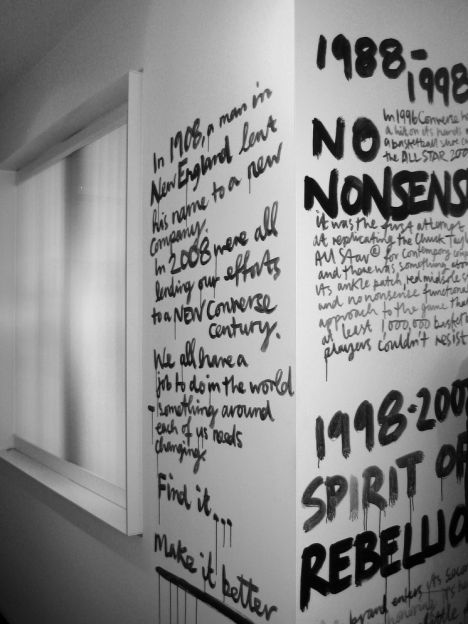 In 1908, a man in
New England lent
his name to a new
company.
In 2008 we're all
lending our efforts
to a NEW Converse
century.
We all have a
job to do in the world
- something around
each of us needs
changing.
Find it...
Make it better
1988-
1998
NO
NONSENS
In 1996 Converse h
a hit on its hands
a basketball shoe
the ALL STAR 200
it was the first attempt
at replicating the Chuck Tayl
All Star® for contemporary
and there was something about
its ankle patch, red midsole s
and no nonsense functional
approach to the game tha
at least 1,000,000 basket
players couldn't resist
1998-200
SPIRIT OF
REBELLIO
brand enters its